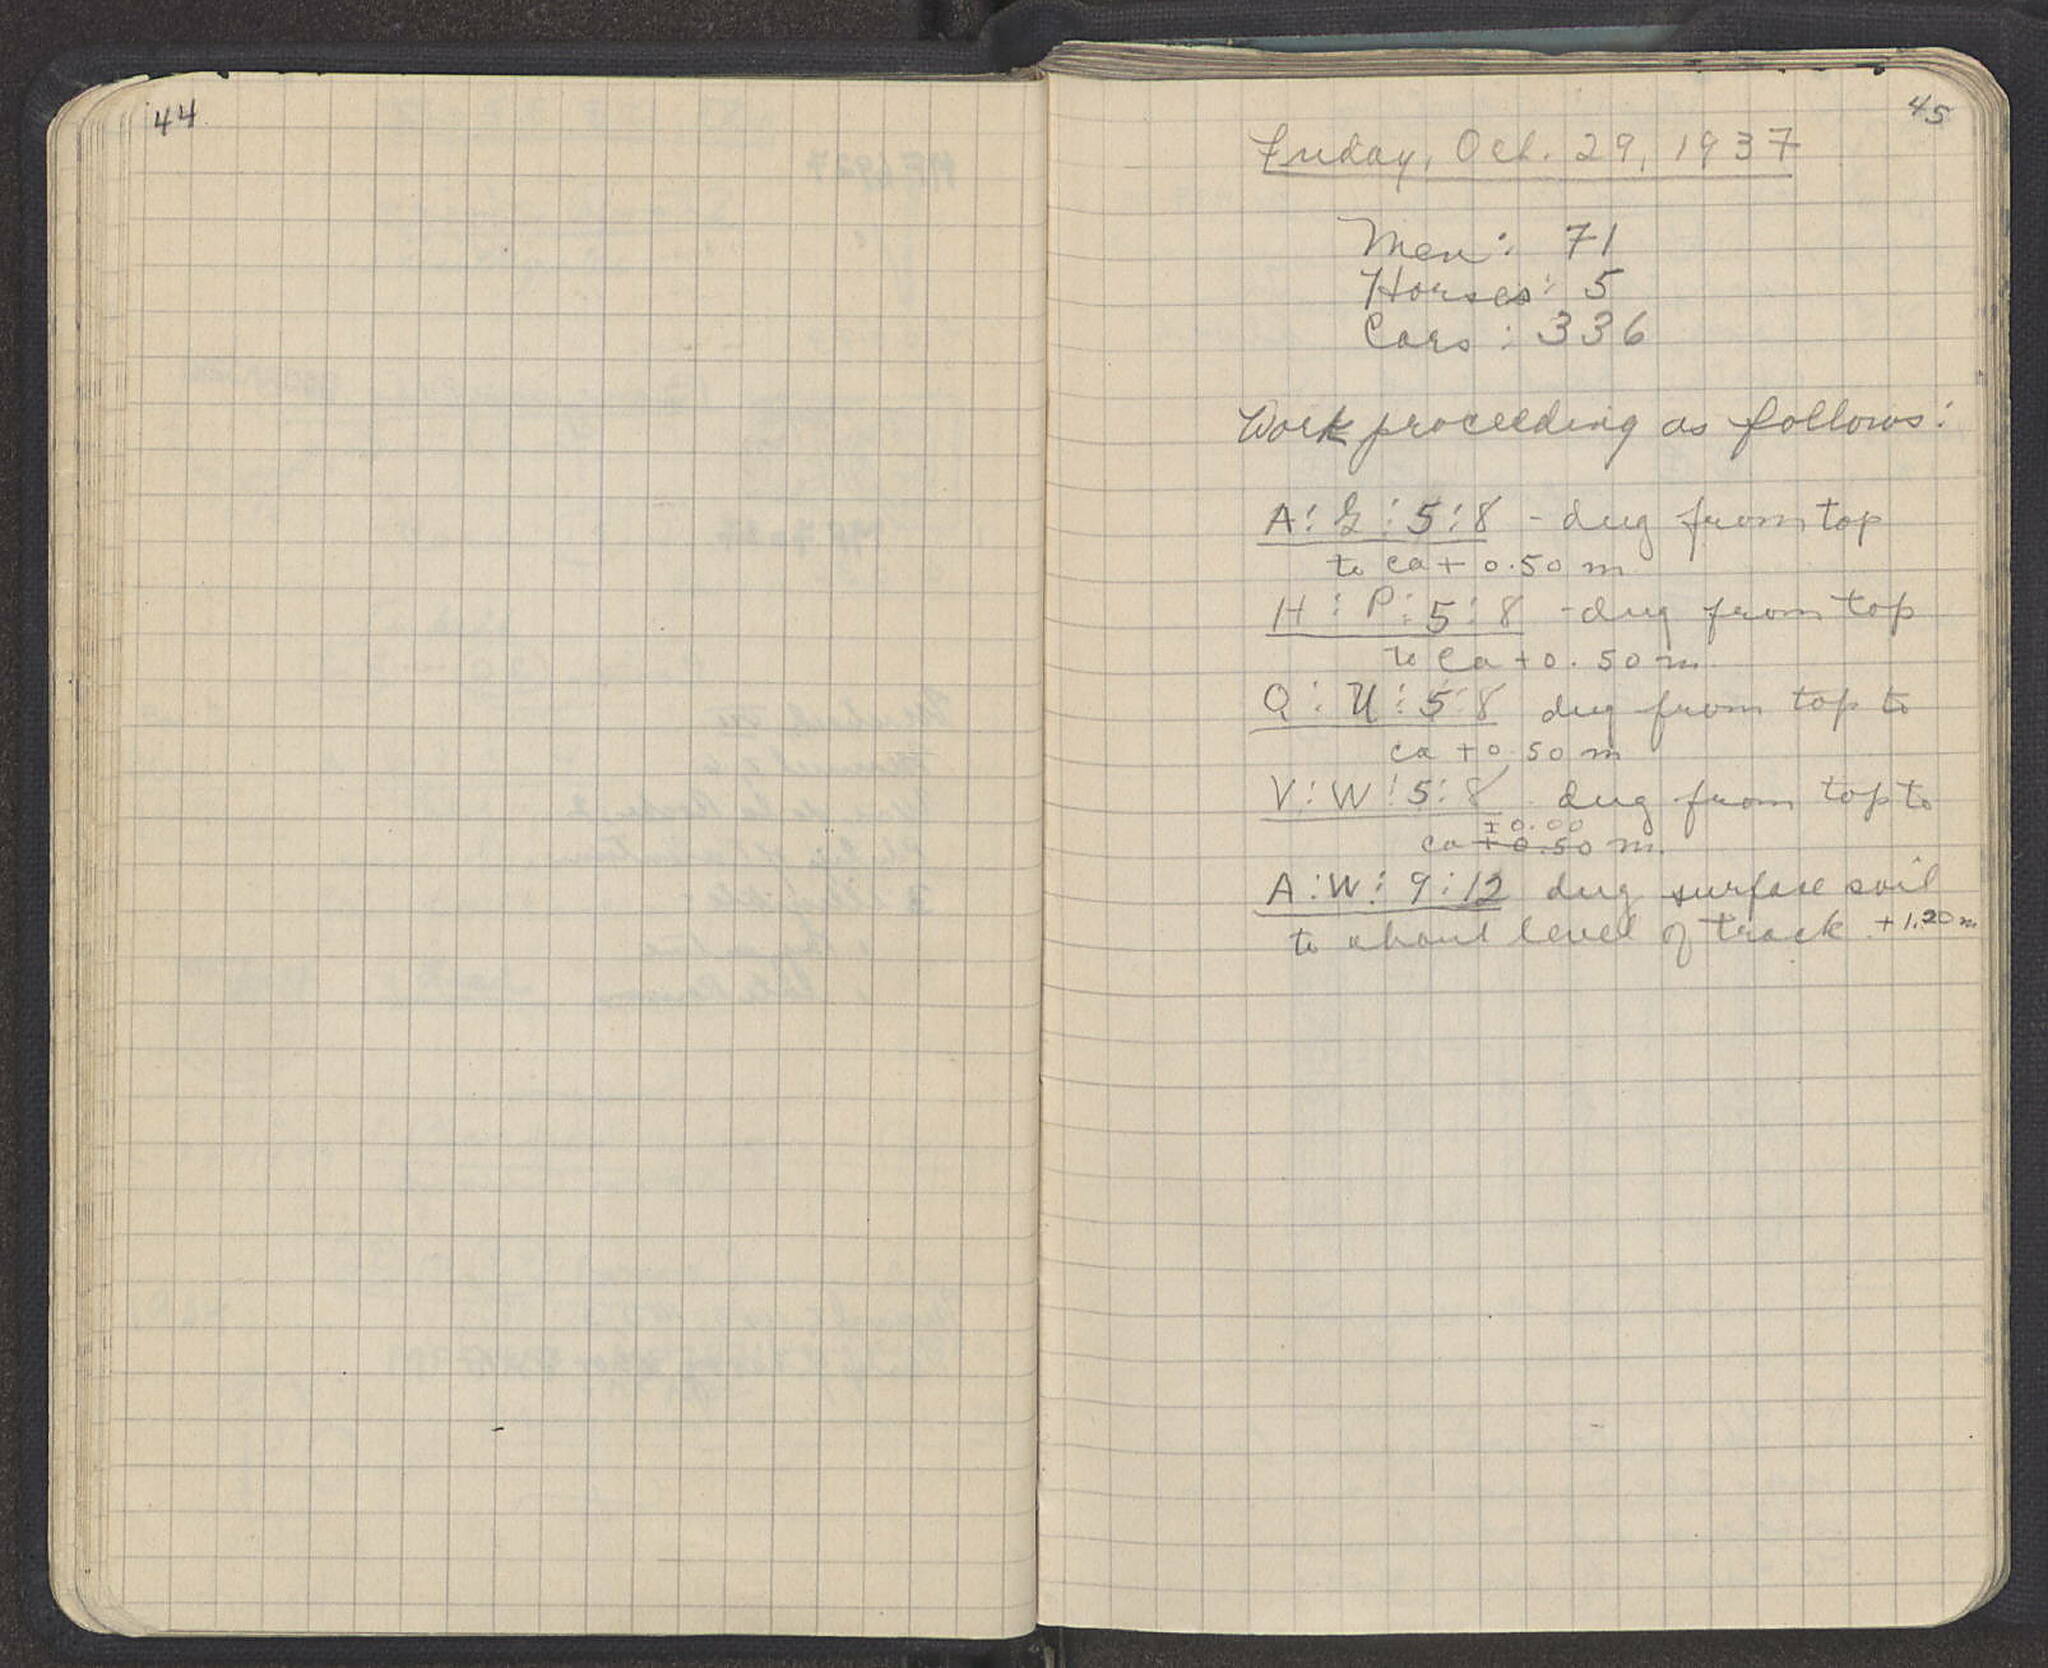 44
45
Friday, Oct. 29, 1937
Men: 71
Horses: 5
Cars: 336
Work proceeding as follows:
A:G:5:8 - dug from top
to ca + 0.50 m
H:P:5:8 - dug from top
to ca + 0.50 m
Q:U:5:8 dug from top to
ca + 0.50 m
V:W:5:8 dug from top to
± 0.00
ca + 0.50 m.
A:W:9:12 dug surface soil
to about level of track + 1.20 m